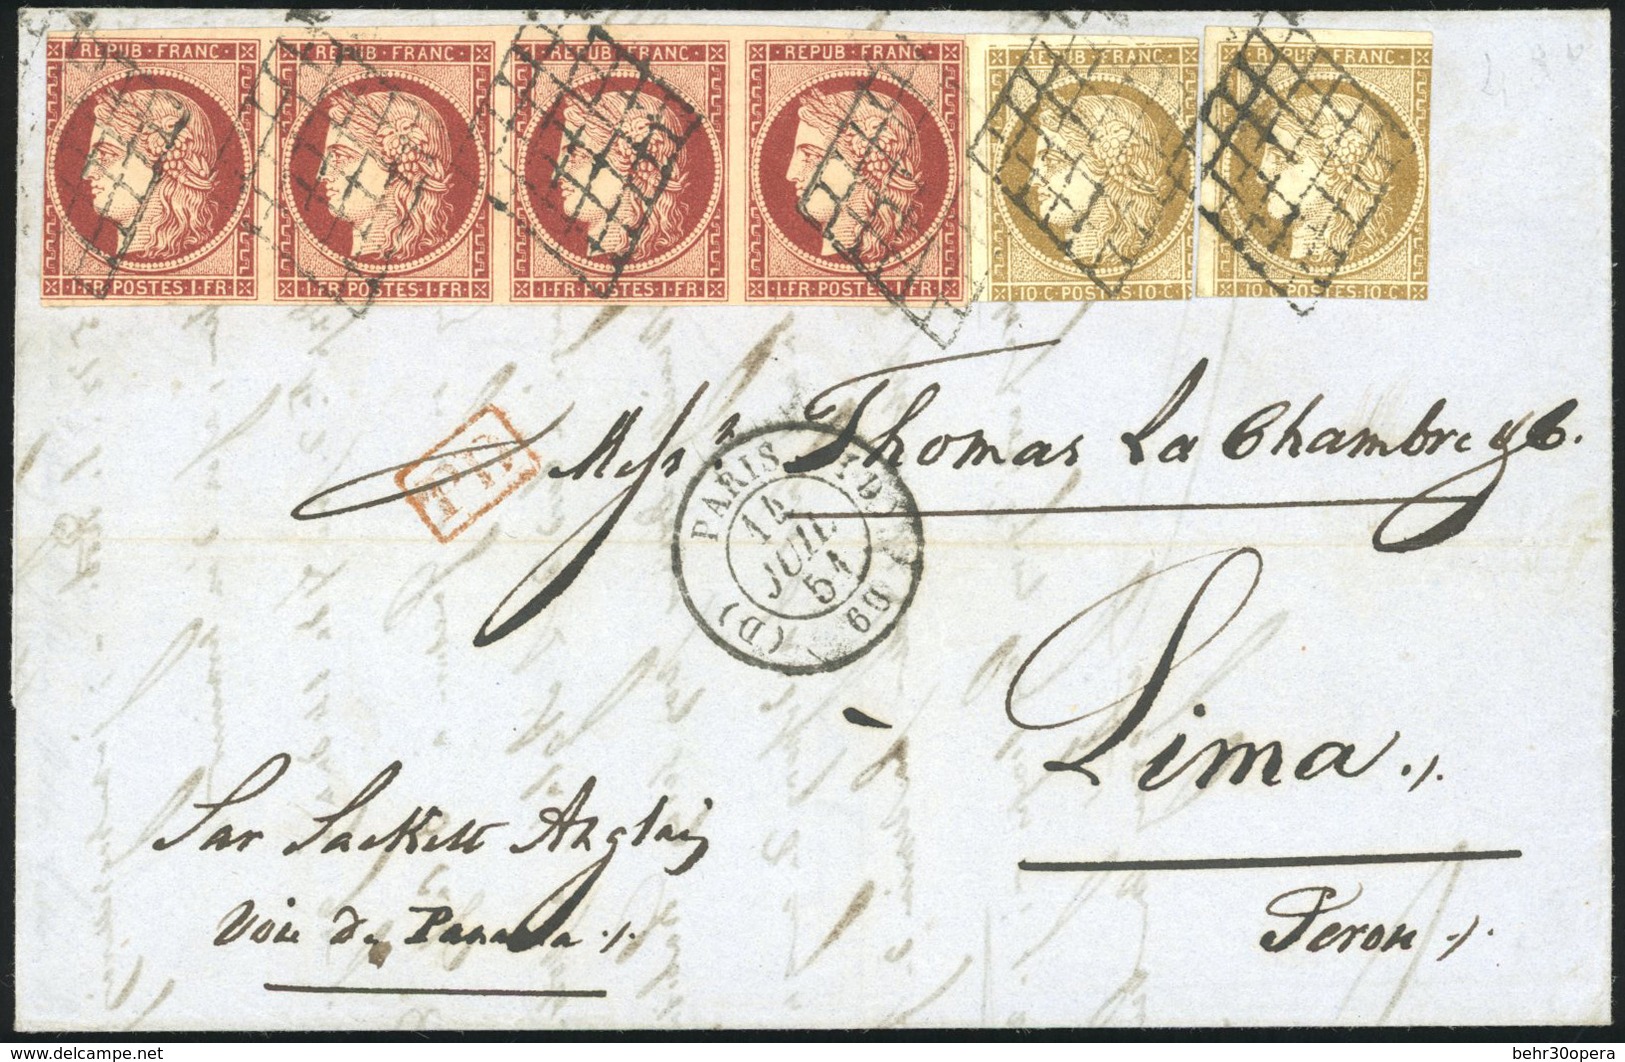 REPUB·FRANC REPUB·FRANC REPUB·FRANC REPUB·FRANC REPUB·FRANC REPUB·FRANC
1·FR·POSTES·1·FR· 1·FR·POSTES·1·FR· 1·FR·POSTES·1·FR· 1·FR·POSTES·1·FR· 10·C·POSTES·10·C· 10·C·POSTES·10·C·
Messrs Thomas La Chambre & C.
P.P.
PARIS
14
JUIL.
51
(D) (60)
Lima ./.
Perou ./.
Par Packett Anglais
Voie de Panama ./.
delcampe.net
behr30opera